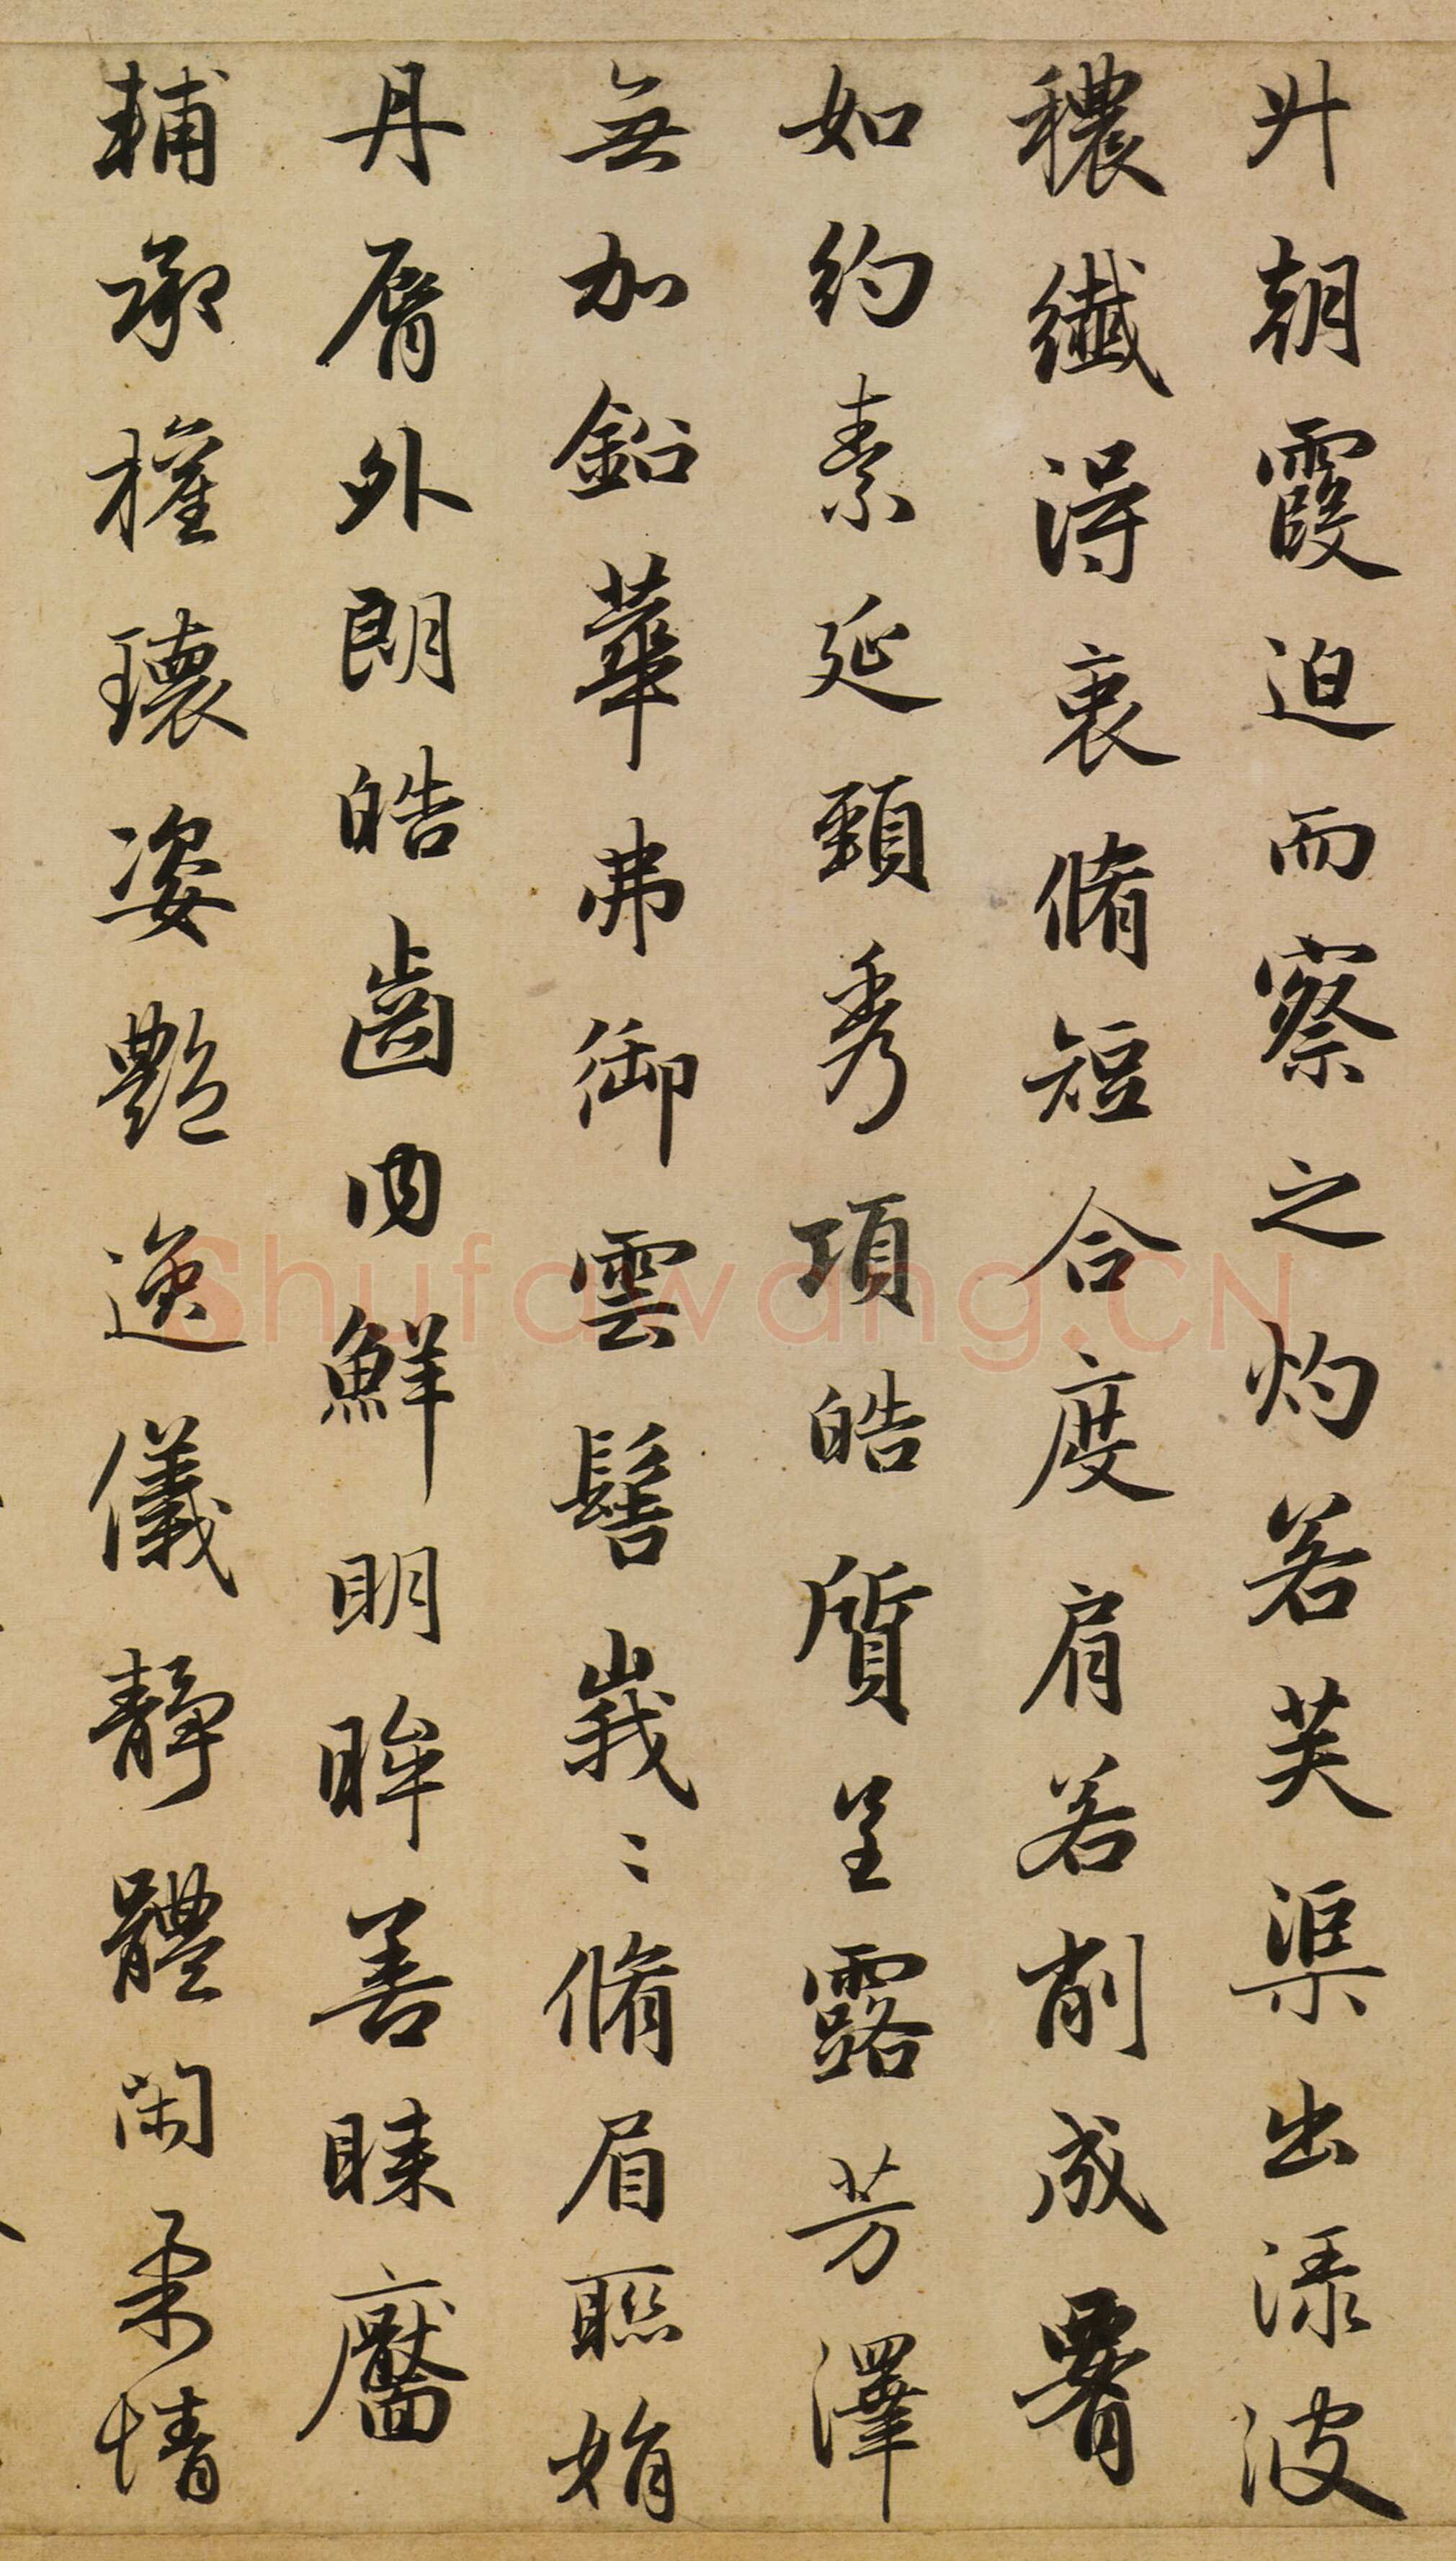 升朝霞迫而察之灼若芙渠出渌波
穠纖得衷脩短合度肩若削成署
如約素延頸秀項皓質呈露芳澤
無加鉛華弗御雲髻峩〻脩眉聯娟
丹脣外朗皓齒内鮮明眸善睞靨
輔承權瓌姿艷逸儀靜體閑柔情
Shufawang.CN